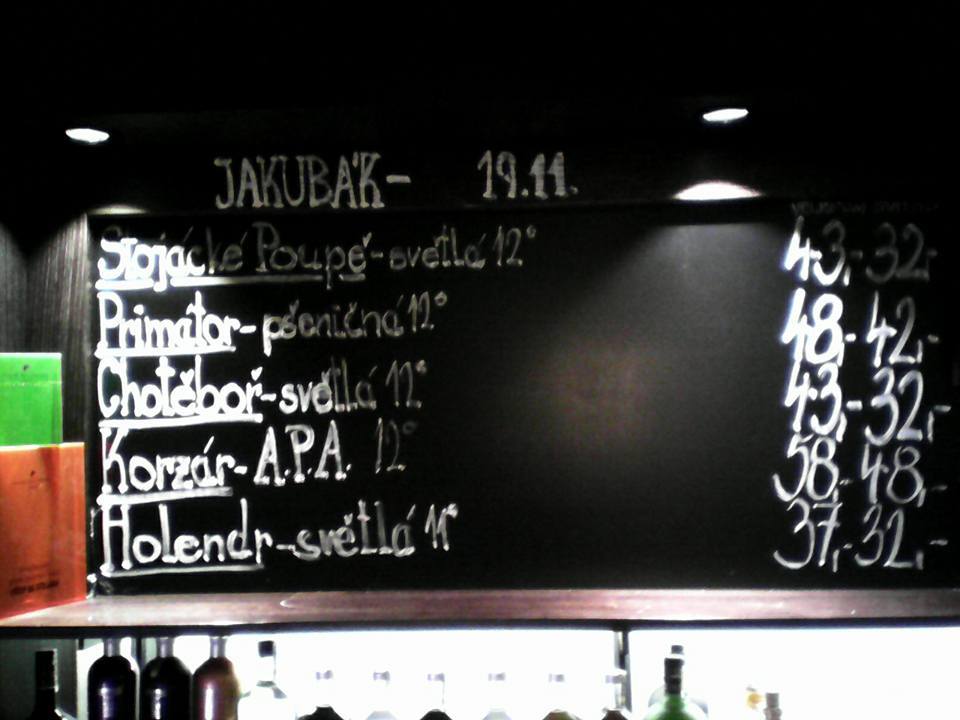 JAKUBÁK - 19.11.
Stojácké Poupě - světlá 12° 43,- 32,-
Primátor - pšeničná 12° 48,- 42,-
Chotěboř - světlá 12° 43,- 32,-
Korzár - A.P.A. 12° 58,- 48,-
Holendr - světlá 11° 37,- 32,-